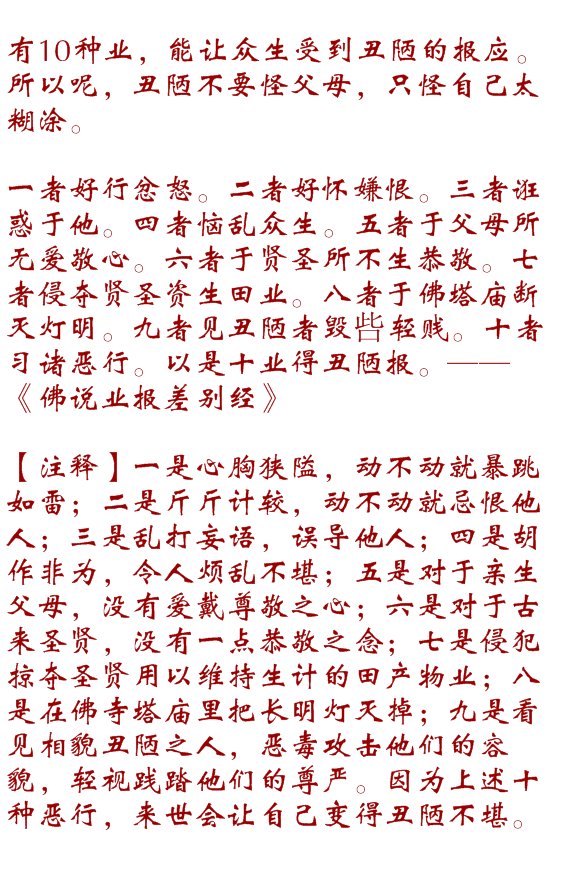 有10种业，能让众生受到丑陋的报应。
所以呢，丑陋不要怪父母，只怪自己太
糊涂。
一者好行忿怒。二者好怀嫌恨。三者诳
惑于他。四者恼乱众生。五者于父母所
无爱敬心。六者于贤圣所不生恭敬。七
者侵夺贤圣资生田业。八者于佛塔庙断
灭灯明。九者见丑陋者毁呰轻贱。十者
习诸恶行。以是十业得丑陋报。——
《佛说业报差别经》
【注释】一是心胸狭隘，动不动就暴跳
如雷；二是斤斤计较，动不动就忌恨他
人；三是乱打妄语，误导他人；四是胡
作非为，令人烦乱不堪；五是对于亲生
父母，没有爱戴尊敬之心；六是对于古
来圣贤，没有一点恭敬之念；七是侵犯
掠夺圣贤用以维持生计的田产物业；八
是在佛寺塔庙里把长明灯灭掉；九是看
见相貌丑陋之人，恶毒攻击他们的容
貌，轻视践踏他们的尊严。因为上述十
种恶行，来世会让自己变得丑陋不堪。